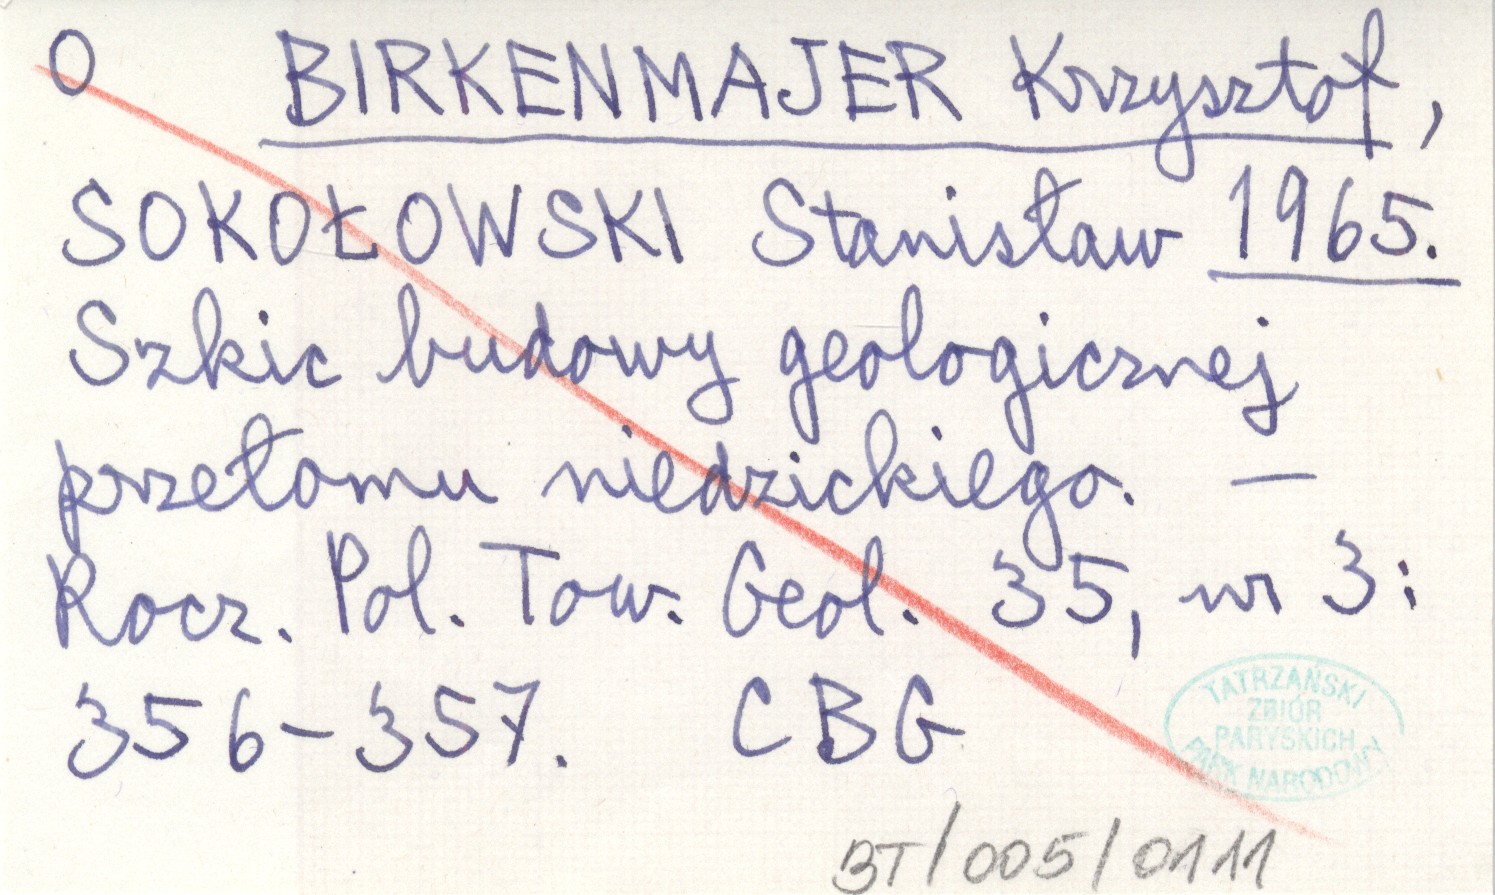 O BIRKENMAJER Krzysztof,
SOKOŁOWSKI Stanisław 1965.
Szkic budowy geologicznej
przełomu niedzickiego. —
Rocz. Pol. Tow. Geol. 35, nr 3:
356-357. CBG
TATRZAŃSKI
ZBIÓR
PARYSKICH
PARK NARODOWY
BT/005/0111